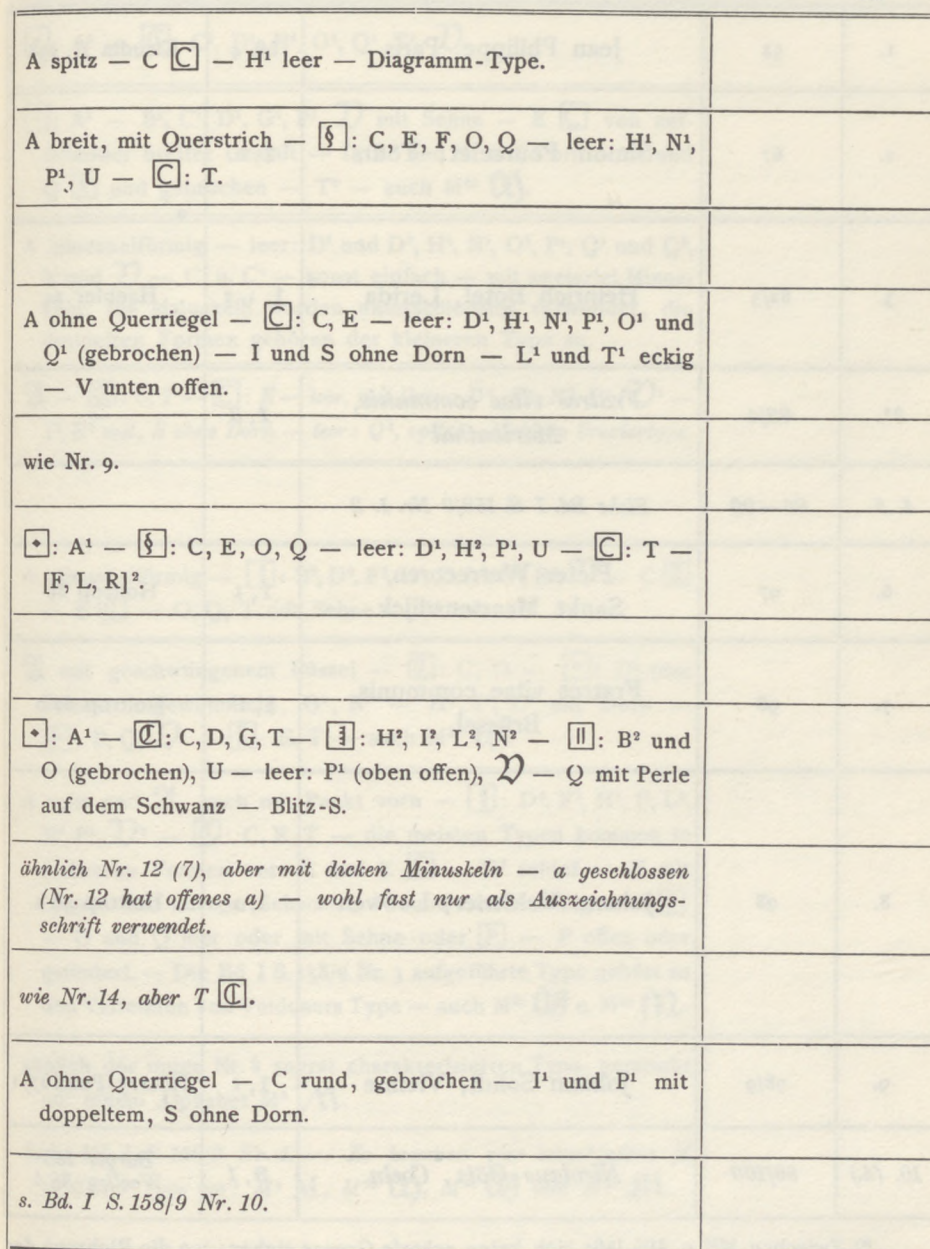 A spitz — C [C] — H¹ leer — Diagramm-Type.
A breit, mit Querstrich — [§]: C, E, F, O, Q — leer: H¹, N¹,
P¹, U — [C]: T.
A ohne Querriegel — [C]: C, E — leer: D¹, H¹, N¹, P¹, O¹ und
Q¹ (gebrochen) — I und S ohne Dorn — L¹ und T¹ eckig
— V unten offen.
wie Nr. 9.
[◆]: A¹ — [§]: C, E, O, Q — leer: D¹, H², P¹, U — [C]: T —
[F, L, R]².
[◆]: A¹ — [ℭ]: C, D, G, T — : H², I², L², N² — [||]: B² und
O (gebrochen), U — leer: P¹ (oben offen), 𝔇 — Q mit Perle
auf dem Schwanz — Blitz-S.
ähnlich Nr. 12 (7), aber mit dicken Minuskeln — a geschlossen
(Nr. 12 hat offenes a) — wohl fast nur als Auszeichnungs-
schrift verwendet.
wie Nr. 14, aber T [ℭ].
A ohne Querriegel — C rund, gebrochen — I¹ und P¹ mit
doppeltem, S ohne Dorn.
s. Bd. I S. 158/9 Nr. 10.